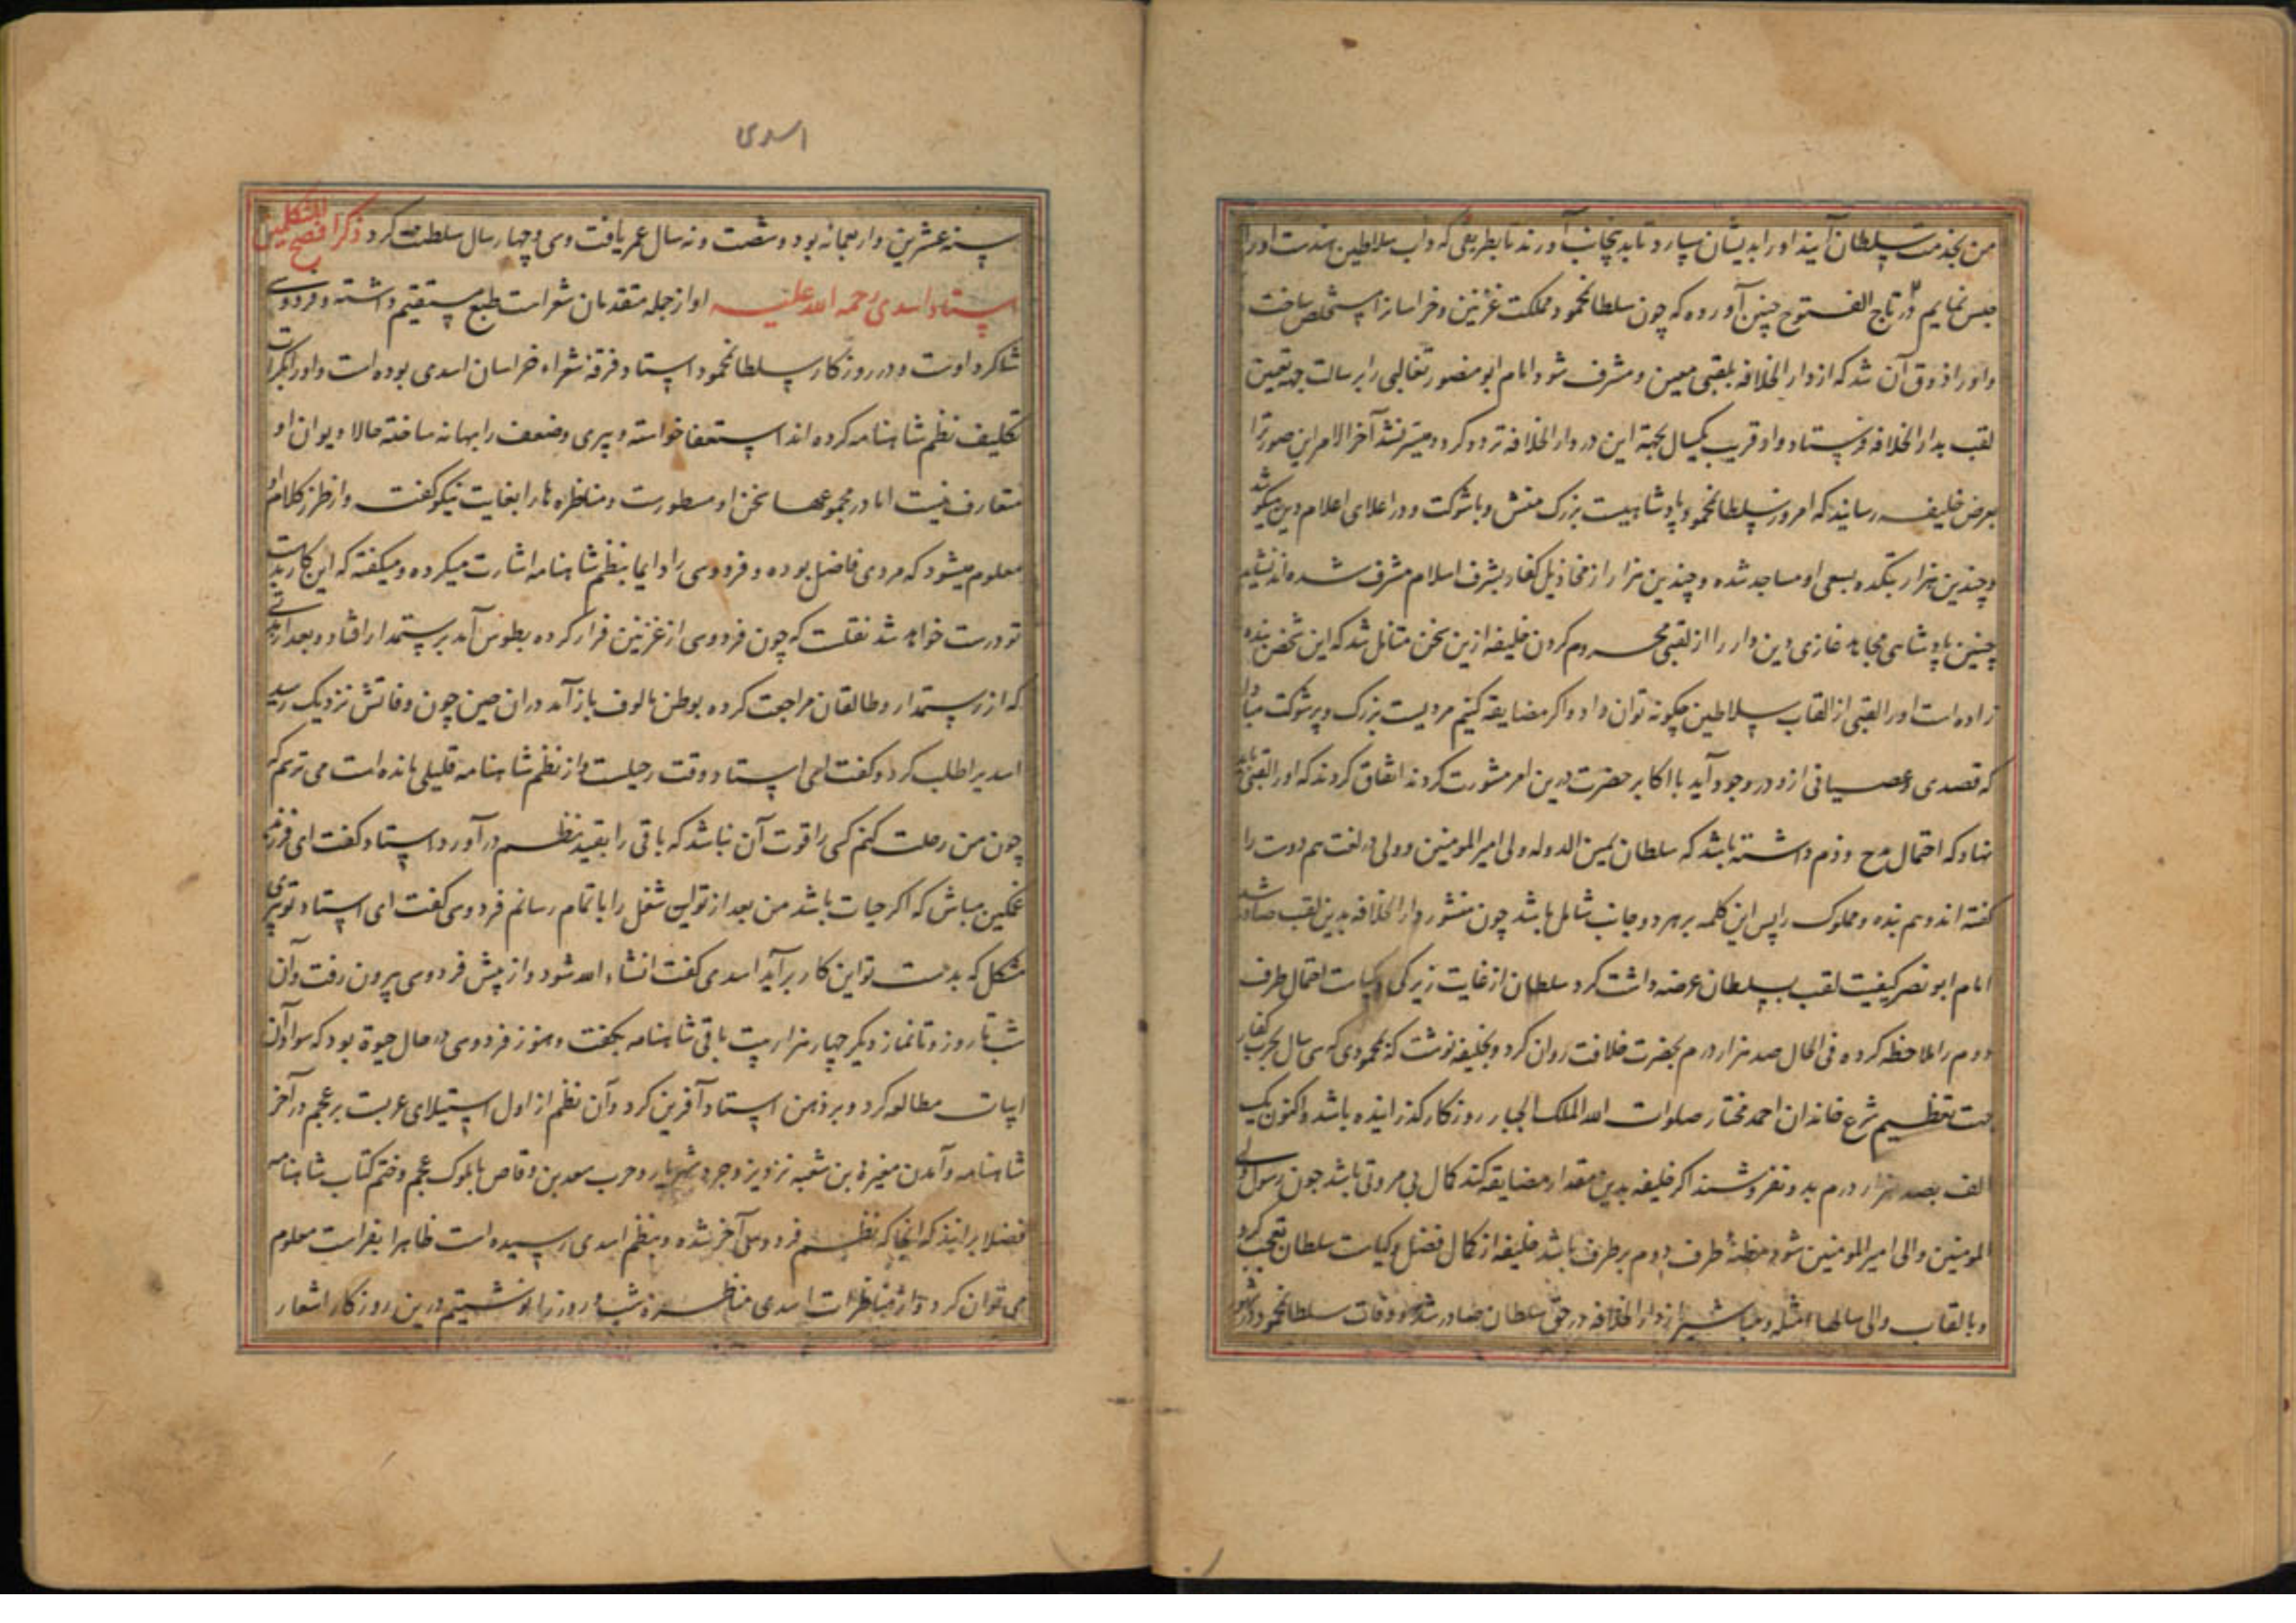 من بخدمت سلطان آیند اورا بدیشان سپارد تا بدینجانب آورند تا بطریقی که داب سلاطین هندست اورا
حبس نمایم و در تاج الفتوح چنین آورده که چون سلطانمحمود مملکت غزنین و خراسانرا مستخلص ساخت
و اورا ذوق آن شد که از دار الخلافه بلقبی معین و مشرف شود امام ابو منصور ثعالبی را برسالت جهة تعیین
لقب بدار الخلافه فرستاد و او قریب یکسال بجهة این در دار الخلافه تردد کرد و میسر نشد آخر الامر این صورترا
بعرض خلیفه رسانید که امروز سلطانمحمود پادشاهیست بزرک منش و با شوکت و در اعلای اعلام دین میکوشد
و چندین هزار بتکده بسعی او مساجد شده و چندین هزار از مخاذیل کفار بشرف اسلام مشرف شده اند نشاید
چنین پادشاهی مجاهد غازی دین دار را از لقبی محروم کردن خلیفه ازین سخن متامل شد که این شخص بنده
زاده است اورا لقبی از القاب سلاطین چکونه توان داد و اکر مضایقه کنیم مردیست بزرک و پر شوکت مبادا
که قصدی و عصیانی ازو در وجود آید با اکابر حضرت درین امر مشورت کردند اتفاق کردند که اورا لقبی باید
نهاد که احتمال مدح و ذم داشته باشد که سلطان یمین الدوله ولی امیر المومنین و ولی در لغت هم دوست را
کفته اند و هم بنده و مملوک را پس این کلمه بر هر دو جانب شامل باشد چون منشور دار الخلافه بدین لقب صادر شد
امام ابو نصر کیفیت لقب بسلطان عرضه داشت کرد سلطان از غایت زیرکی و کیاست احتمال طرف
دوم را ملاحظه کرده فی الحال صد هزار درم بحضرت خلافت روان کرد و بخلیفه نوشت که محمودی که سی سال بحرب کفار
جهت تعظیم شرع خاندان احمد مختار صلوات الله الملک الجبار روزکار کذرانیده باشد و اکنون یک
الف بصد هزار درم بدو نفروشند اکر خلیفه بدین مقدار مضایقه کند کمال بی مروتی باشد چون رسول
المومنین والی امیر المومنین شود مظنهٔ طرف دوم بر طرف باشد خلیفه از کمال فضل و کیاست سلطان تعجب کرد
و بالقاب والی سالها امثله و مناشیر از دار الخلافه در حق سلطان صادر شد و وفات سلطانمحمود در شهور
اسدی
سنه عشرین و اربعمانه بود و شصت و نه سال عمر یافت و سی و چهار سال سلطنت کرد ذکر افصح المتکلمین
استاد اسدی رحمه الله علیه او از جمله متقدمان شعراست طبع مستقیم داشته و فردوسی
شاکرد اوست و در روزکار سلطانمحمود استاد فرقهٔ شعراء خراسان اسدی بوده است و اورا بکرات
تکلیف نظم شاهنامه کرده اند استعفا خواسته و پیری و ضعف را بهانه ساخته حالا دیوان او
متعارف نیست اما در مجموعها سخن او مسطورست و مناظره ها را بغایت نیکو کفته و از طرز کلام او
معلوم میشود که مردی فاضل بوده و فردوسی را دایما بنظم شاهنامه اشارت میکرده و میکفته که این کار بدست
تو درست خواهد شد نقلست که چون فردوسی از غزنین فرار کرده بطوس آمد برستمدار افتاد و بعد از مدتی
که از رستمدار و طالقان مراجعت کرده بوطن مالوف باز آمد در ان حین چون وفاتش نزدیک رسید
اسدیرا طلب کرد و کفت ای استاد وقت رحیلست و از نظم شاهنامه قلیلی مانده است می ترسم که
چون من رحلت کنم کسی را قوت آن نباشد که باقی را بقید نظم در آورد استاد کفت ای فرزند
غمکین مباش که اکر حیات باشد من بعد از تو این شغل را باتمام رسانم فردوسی کفت ای استاد تو پیری
مشکل که بدست تو این کار بر آید اسدی کفت انشاء الله شود و از پیش فردوسی بیرون رفت و آن
شب تا روز و تا نماز دیکر چهار هزار بیت باقی شاهنامه بکفت و هنوز فردوسی در حال حیوة بود که سواد آن
ابیات مطالعه کرد و بر ذهن استاد آفرین کرد و آن نظم از اول استیلای عربست بر عجم در آخر
شاهنامه و آمدن مغیرة بن شعبه نزد یزدجرد شهریار و حرب سعد بن وقاص با ملوک عجم و ختم کتاب شاهنامه
فضلا برانند که آنجا که نظم فردوسی آخر شده و بنظم اسدی رسیده است ظاهرا بفراست معلوم
می توان کرد و از مناظرات اسدی مناظرهٔ شب و روز را نوشتیم درین روزکار اشعار